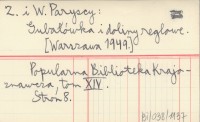 2. i W. Paryscy:
Gubałówka i doliny reglowe.
[Warszawa 1949.]
Popularna Biblioteka Krajo-
znawcza, tom XIV.
Stron 8.
B/032/1137